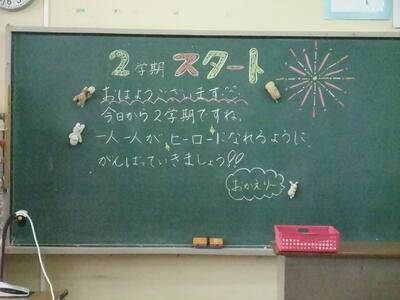 2学期 スタート
おはようございます
今日から2学期ですね。
一人一人が ヒーローになれるように、
がんばっていきましょう!!
おかえりー